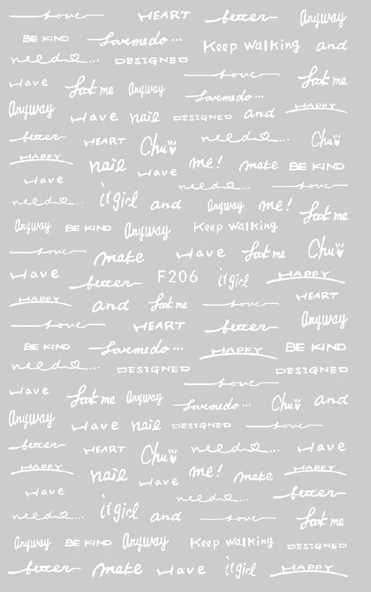 love HEART better Anyway
BE KIND Lovemedo ... Keep Walking and
need... DESIGNED
Have Look me Anyway love Look me
Lovemedo ...
Anyway Have nail DESIGNED and HAPPY
better HEART Chu need... Chu
HAPPY nail Have me! make BE KIND
Have need... love
need... it girl and Anyway me! Look me
Anyway BE KIND Anyway Keep Walking
love make Have Look me Chu
Have better F206 it girl HAPPY
HAPPY and Look me love HEART
love HEART better Anyway
BE KIND Lovemedo ... HAPPY BE KIND
need... DESIGNED DESIGNED
love
Have Look me Anyway Lovemedo ... Chu and
Anyway Have nail DESIGNED love
better HEART Chu need... Have
HAPPY nail Have me! make HAPPY
Have need... better
need... it girl and love Look me
Anyway BE KIND Anyway Keep Walking DESIGNED
better make Have it girl HAPPY